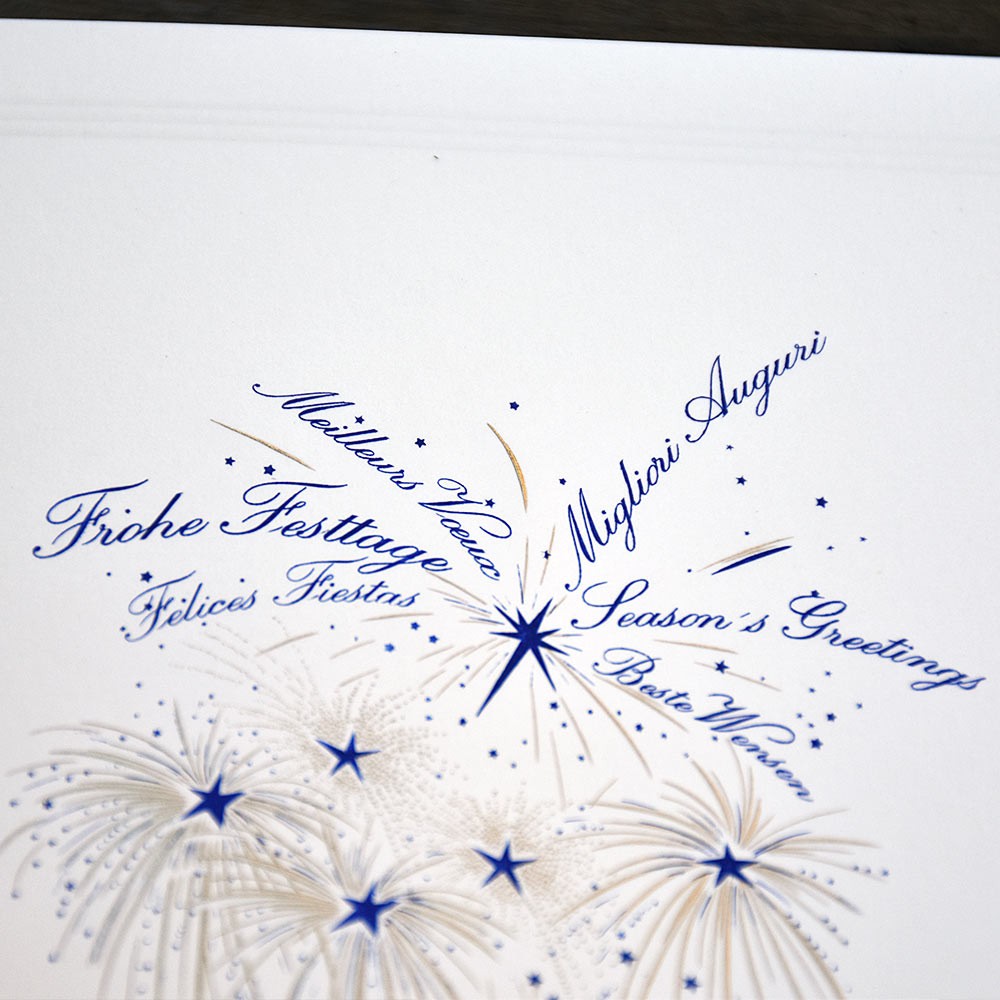 Meilleurs Vœux
Migliori Auguri
Frohe Festtage
Felices Fiestas
Season´s Greetings
Beste Wensen